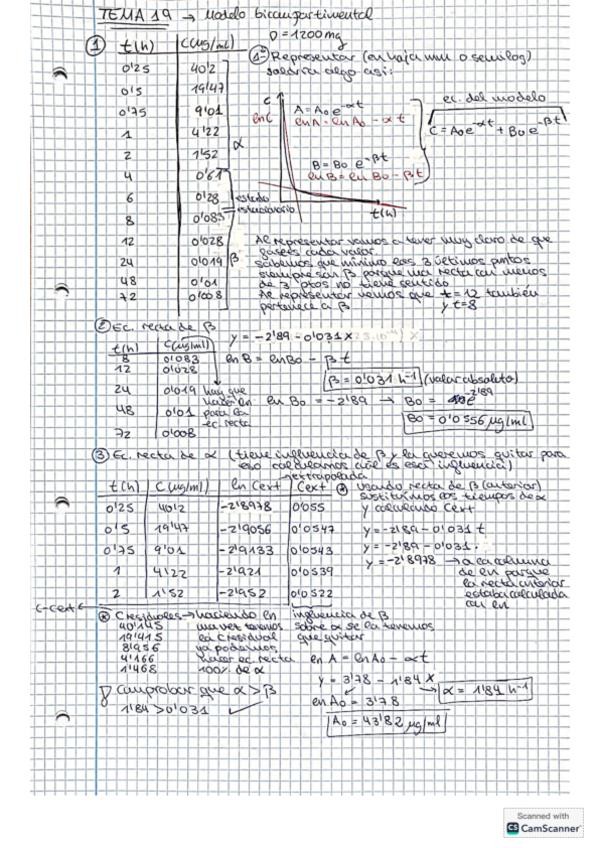 TEMA 19 → Modelo bicompartimental
D = 1200 mg
① t(h) C(µg/ml)
0'25 40'2
0'5 19'47
0'75 9'01
1 4'22
2 1'52
4 0'61
6 0'28
8 0'083
12 0'028
24 0'019
48 0'01
72 0'008
α
β
estado
estacionario
1º Representar (en hoja mm o semilog)
saldría algo así:
C
ln C
A = A₀ e^-αt
ln A = ln A₀ - αt
B = B₀ e^-βt
ln B = ln B₀ - βt
t(h)
ec. del modelo
C = A₀e^-αt + B₀e^-βt
Al representar vamos a tener muy claro de que
es cada valor.
Sabemos que mínimo los 3 últimos puntos
siempre son β porque una recta con menos
de 3 ptos no tiene sentido
Al representar vemos que t=12 también
pertenece a β y t=8
② Ec. recta de β
y = -2'89 - 0'031 x
t(h) C(µg/ml)
8 0'083
12 0'028
24 0'019
48 0'01
72 0'008
hay que
hacer ln
para la
ec. recta
ln B = ln B₀ - βt
β = 0'031 h⁻¹ (valor absoluto)
ln B₀ = -2'89 → B₀ = e^-2'89
B₀ = 0'0556 µg/ml
③ Ec. recta de α (tiene influencia de β y la queremos quitar para
eso calculamos cuál es esa influencia)
extrapolada
t(h) C(µg/ml) ln Cext Cext
0'25 40'2 -2'8978 0'055
0'5 19'47 -2'9056 0'0547
0'75 9'01 -2'9133 0'0543
1 4'22 -2'921 0'0539
2 1'52 -2'952 0'0522
Usando recta de β (anterior)
sustituimos los tiempos de α
y calculando Cext
y = -2'89 - 0'031 t
y = -2'89 - 0'031 ·
y = -2'8978 → a la columna
de ln porque
la recta anterior
estaba calculada
con ln
C-Cext
Cresiduales → haciendo ln
40'145
19'415
8'956
4'166
1'468
una vez tenemos
la Cresidual
ya podemos
hacer ec. recta
100% de α
influencia de β
sobre α se la tenemos
que quitar
ln A = ln A₀ - αt
y = 3'78 - 1'84 x
α = 1'84 h⁻¹
ln A₀ = 3'78
A₀ = 43'82 µg/ml
Comprobar que α > β
1'84 > 0'031 ✓
Scanned with
CS CamScanner